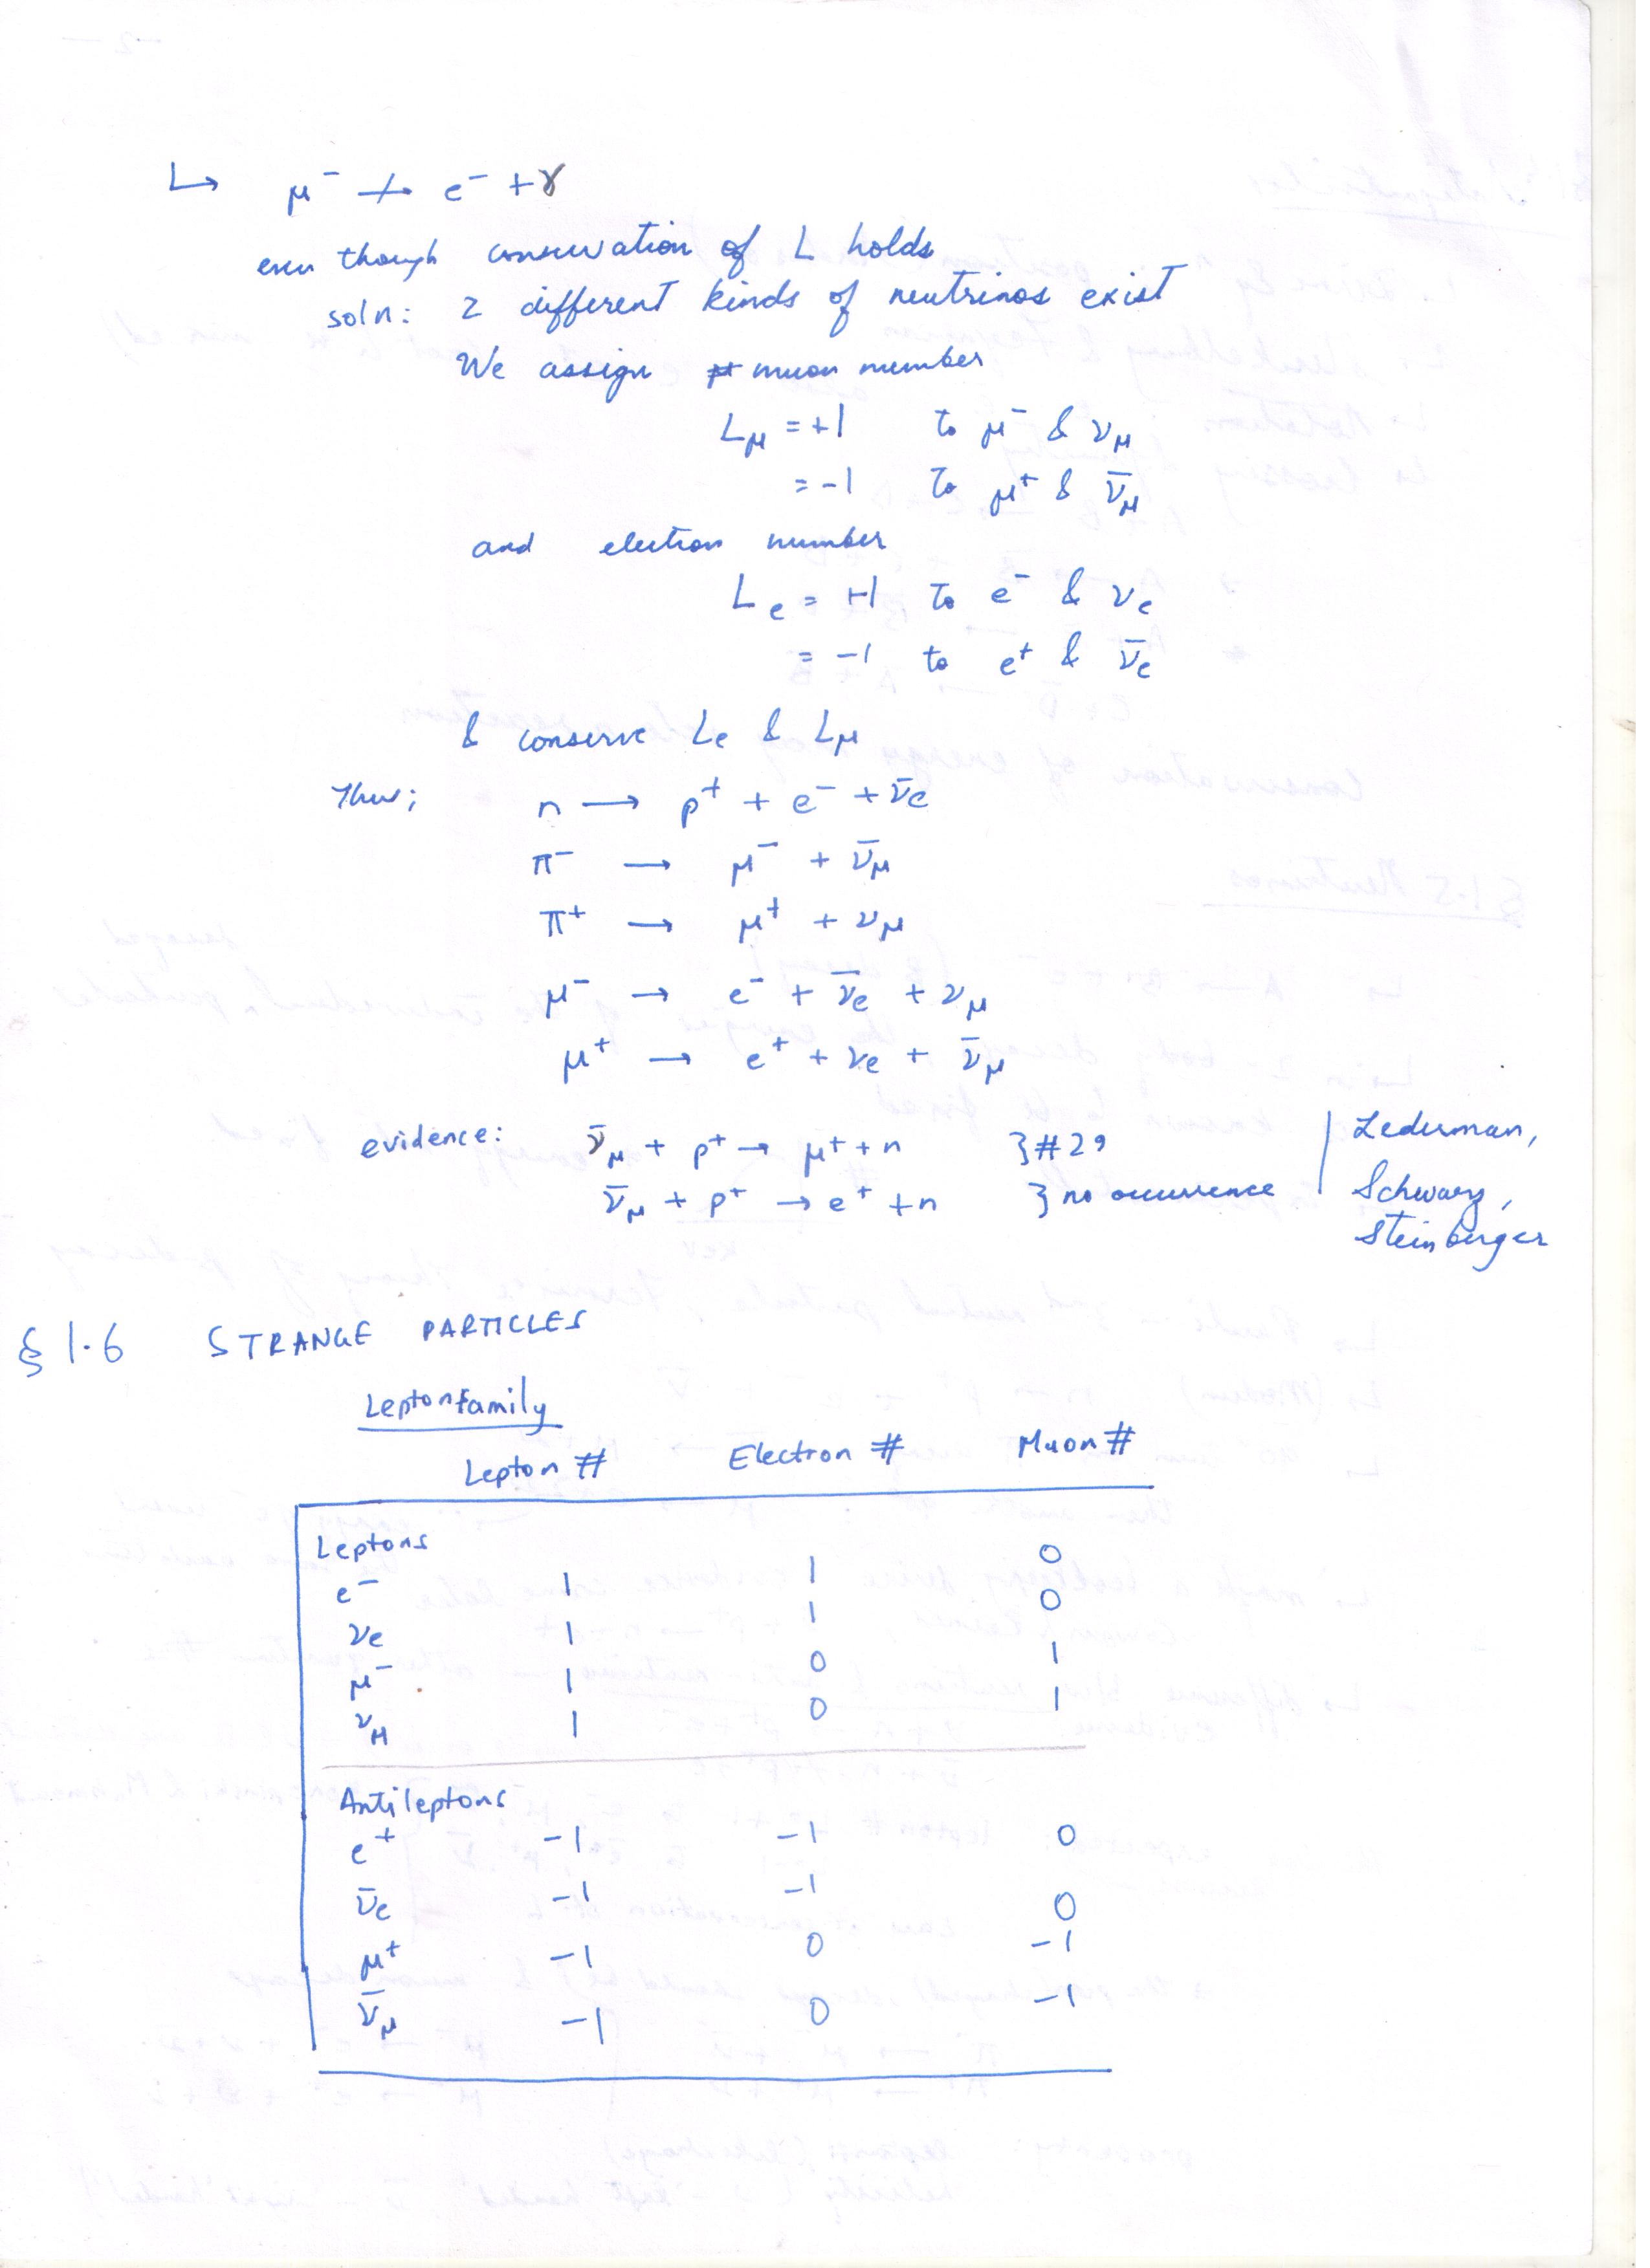 ↳ μ⁻ ↛ e⁻ + γ
even though conservation of L holds
soln: 2 different kinds of neutrinos exist
We assign muon number
L_μ = +1 to μ⁻ & ν_μ
= -1 to μ⁺ & ν̄_μ
and electron number
L_e = +1 to e⁻ & ν_e
= -1 to e⁺ & ν̄_e
& conserve L_e & L_μ
Thus; n → p⁺ + e⁻ + ν̄_e
π⁻ → μ⁻ + ν̄_μ
π⁺ → μ⁺ + ν_μ
μ⁻ → e⁻ + ν̄_e + ν_μ
μ⁺ → e⁺ + ν_e + ν̄_μ
evidence: ν̄_μ + p⁺ → μ⁺ + n } #29 | Lederman,
ν̄_μ + p⁺ → e⁺ + n } no occurrence | Schwarz,
Steinberger
§ 1.6 STRANGE PARTICLES
Lepton Family
Lepton # Electron # Muon #
Leptons
e⁻ 1 1 0
ν_e 1 1 0
μ⁻ 1 0 1
ν_μ 1 0 1
Antileptons
e⁺ -1 -1 0
ν̄_e -1 -1 0
μ⁺ -1 0 -1
ν̄_μ -1 0 -1